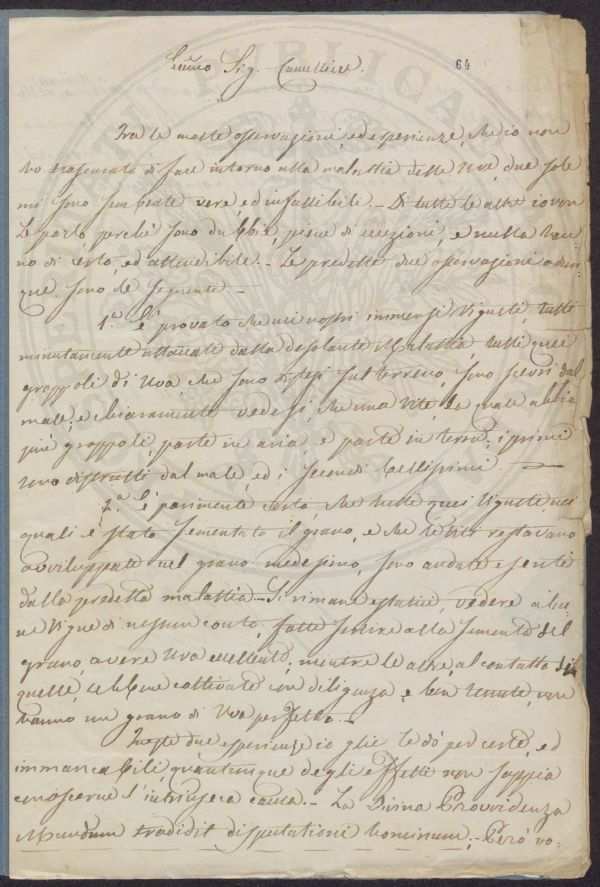 64
Sig. Cancelliere.
Tra le molte osservazioni, ed esperienze, che io non
ho trascurato di fare intorno alla malattia delle Uve, due sole
mi sono sembrate vere, ed infallibili. - Di tutte le altre io non
le parlo, perchè sono dubbie, piene di eccezioni, e nulla han-
no di certo, ed attendibile. - Le predette due osservazioni adun-
que sono le seguenti. -
1.a È provato che nei nostri immensi Vigneti, tutti
minutamente attaccati dalla desolante Malattia, tutti quei
groppoli di Uva, che sono distesi sul terreno, sono scevri dal
male, e chiaramente vedesi, che una vite, la quale abbia
più groppoli, parte in aria, e parte in terra, i primi
sono distrutti dal male, ed i secondi bellissimi. -
2.a È parimente certo, che tutti quei Vigneti nei
quali è stato sementato il grano, e che le viti restavano
avviluppate nel grano medesimo, sono andate esenti
dalla predetta malattia. - Si rimane estatici, vedere alcu-
ne Vigne di nessun conto, fatte servire alla sementa del
grano, avere Uva eccellente, mentre le altre, al contatto di
quelle, sebbene coltivate con diligenza, e ben tenute, non
hanno un grano di Uva perfetto. -
Queste due esperienze io glie le dò per certe, ed
immancabili, quantunque degli effetti non sappia
conoscerne l'intrinseca causa. - La Divina Provvidenza
Mundum tradidit disputationi hominum; Però vo-